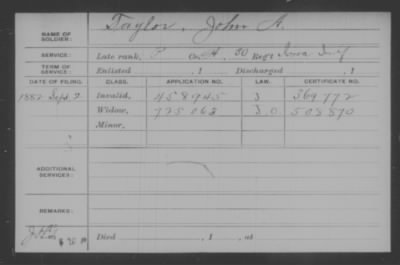 NAME OF SOLDIER: Taylor, John A.
SERVICE: Late rank, P Co. A, 30 Regt Iowa Inf
TERM OF SERVICE: Enlisted , 1 Discharged , 1
DATE OF FILING. CLASS. APPLICATION NO. LAW. CERTIFICATE NO.
1882 Sept. 2 Invalid, 458945 J 369772
Widow, 775063 J.O. 508890
Minor,
ADDITIONAL SERVICES:
REMARKS:
Died , 1 , at